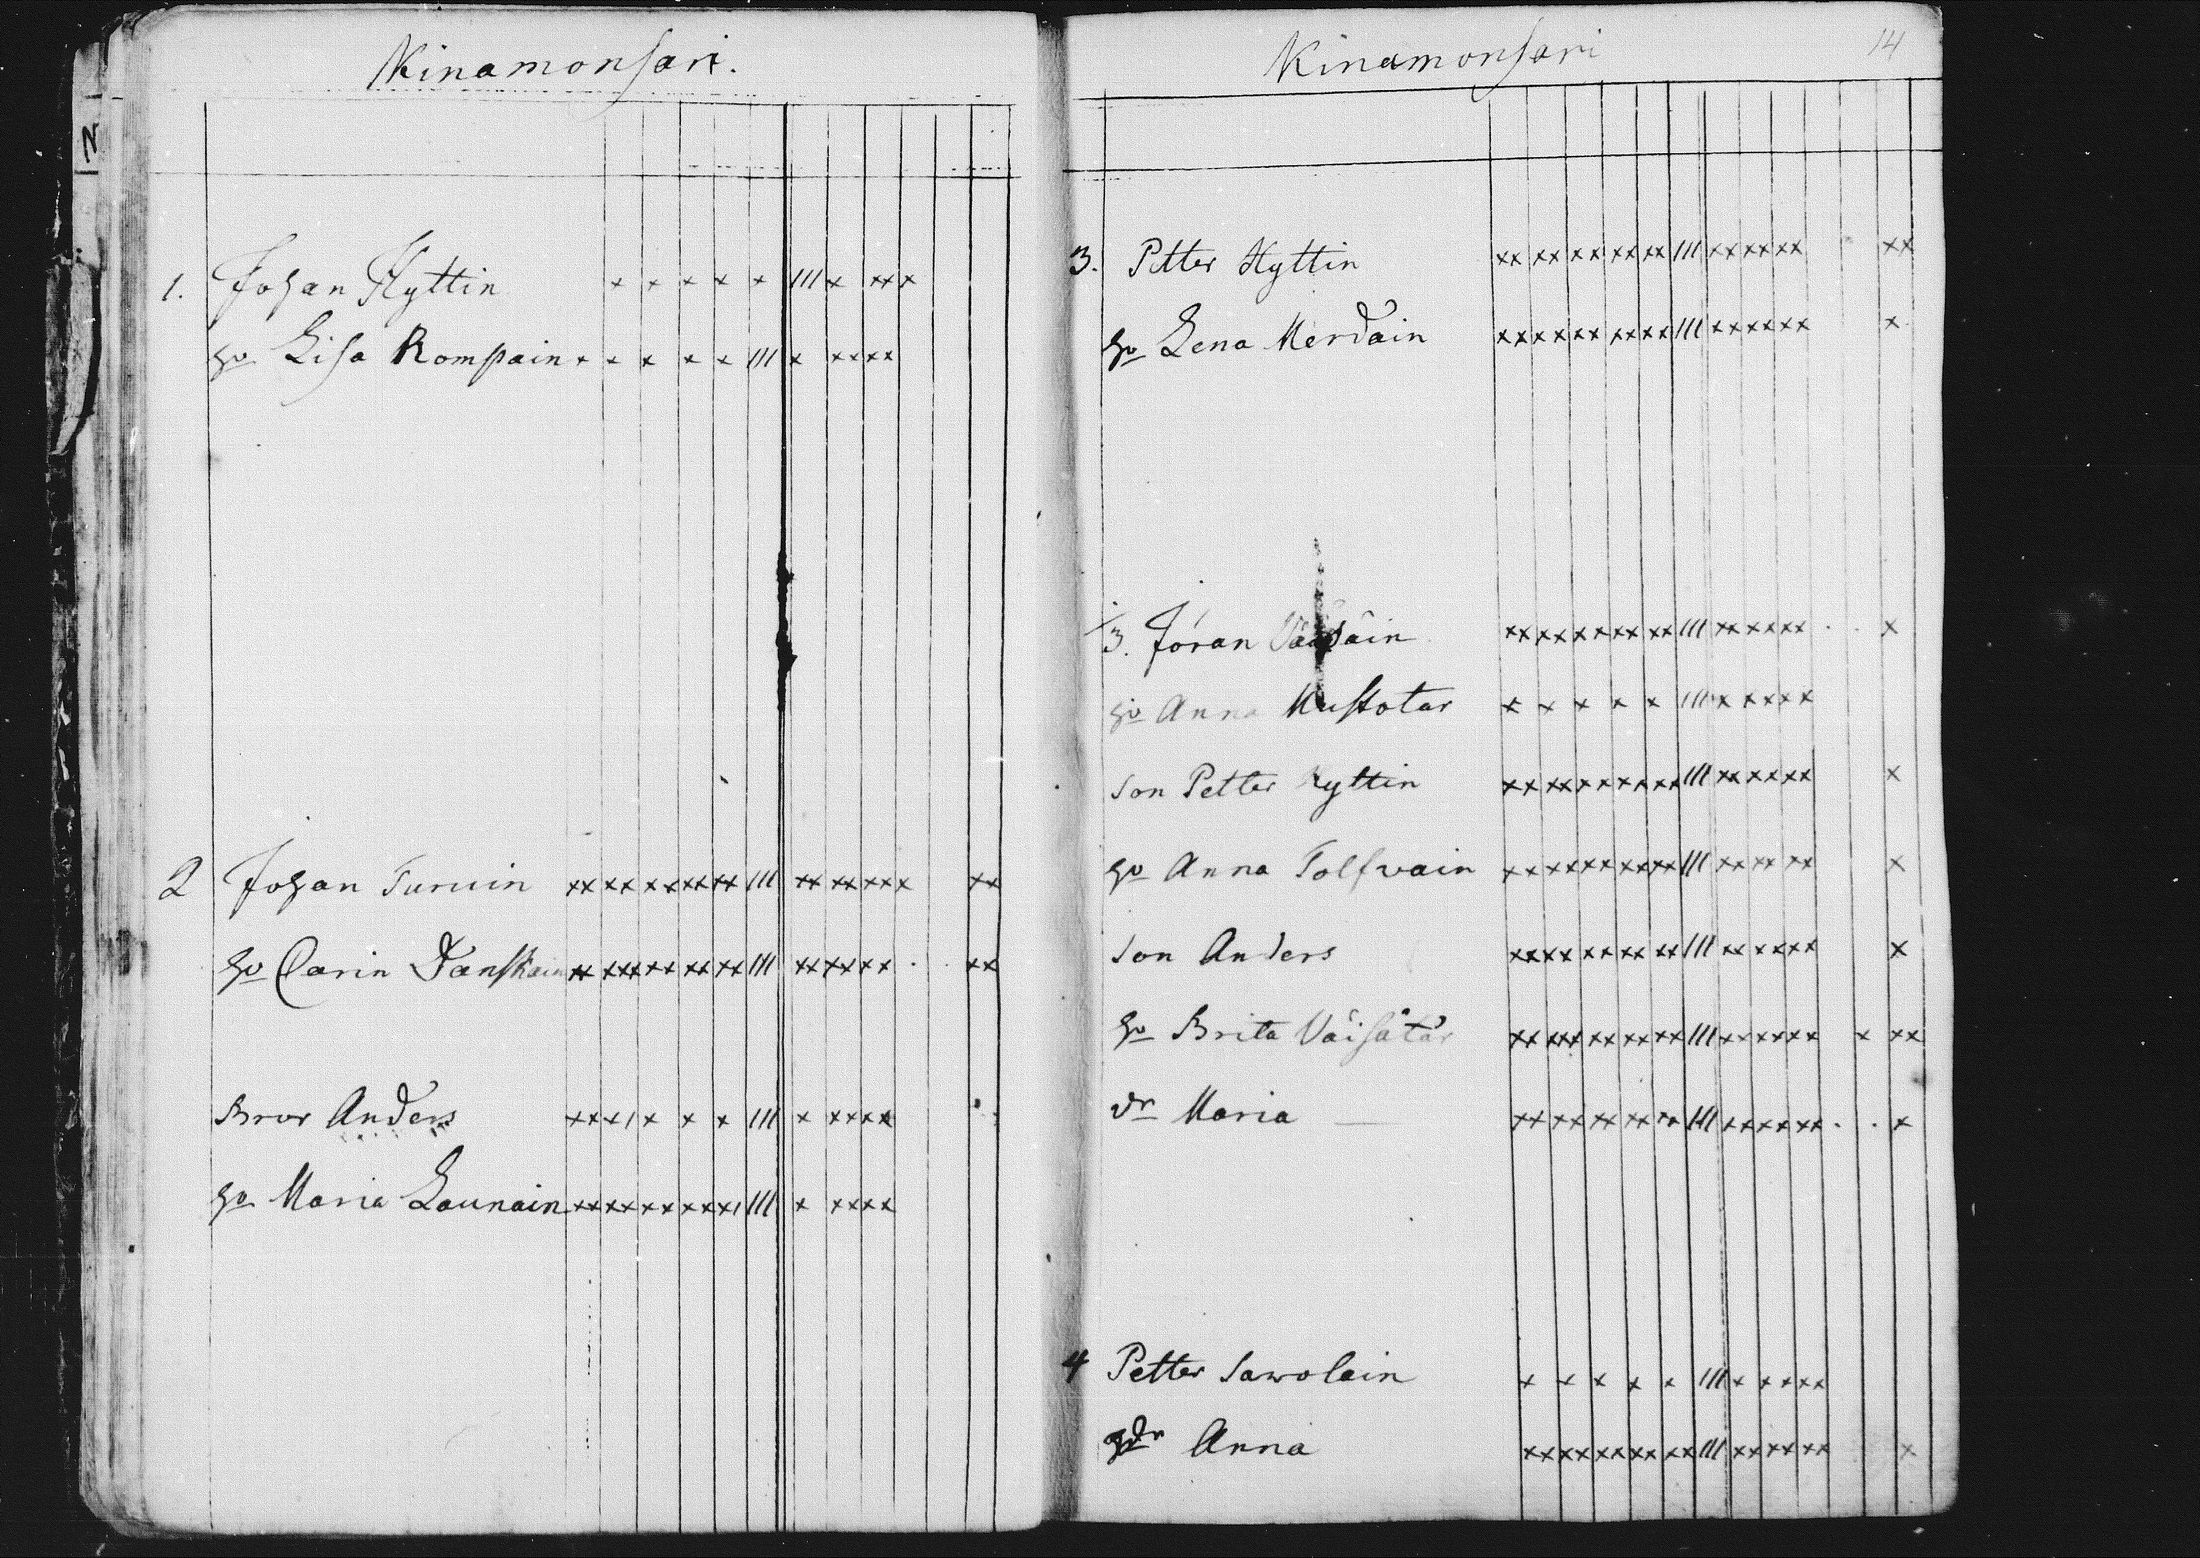 Kinamonsari.
1. Johan Hyttin x x x x x III x xx x
hu Lisa Rompain x x x x x III x xx xx
2 Johan Turuin xx xx xx xx xx III xx xx xx x xx
hu Carin Danskain xx xxx xx xx xx III xx xx xx xx
Bror Anders xx x I x x x III x xx xx
hu Maria Lounain xx xx xx xx x I III x xx xx
Kinamonsari 14
3. Petter Hyttin xx xx xx xx xx III xx xx xx xx
hu Lena Merdain xx xx xx xx xx III xx xx xx x
3. Jöran
hu Anna Mustotar x x x x x III x xx xx
son Petter Hyttin xx xx xx xx xx III xx xx xx x
hu Anna Tolfvain xx xx xx xx xx III xx xx xx x
son Anders xx xx xx xx xx III xx xx xx x
hu Brita Väisätär xx xxx xx xx xx III xx xx xx x xx
dr Maria — xx xx xx xx xx III xx xx xx x
4 Petter Sawolain x x x x x III x x x xx
Anna xx xx xx xx xx III xx xx xx x